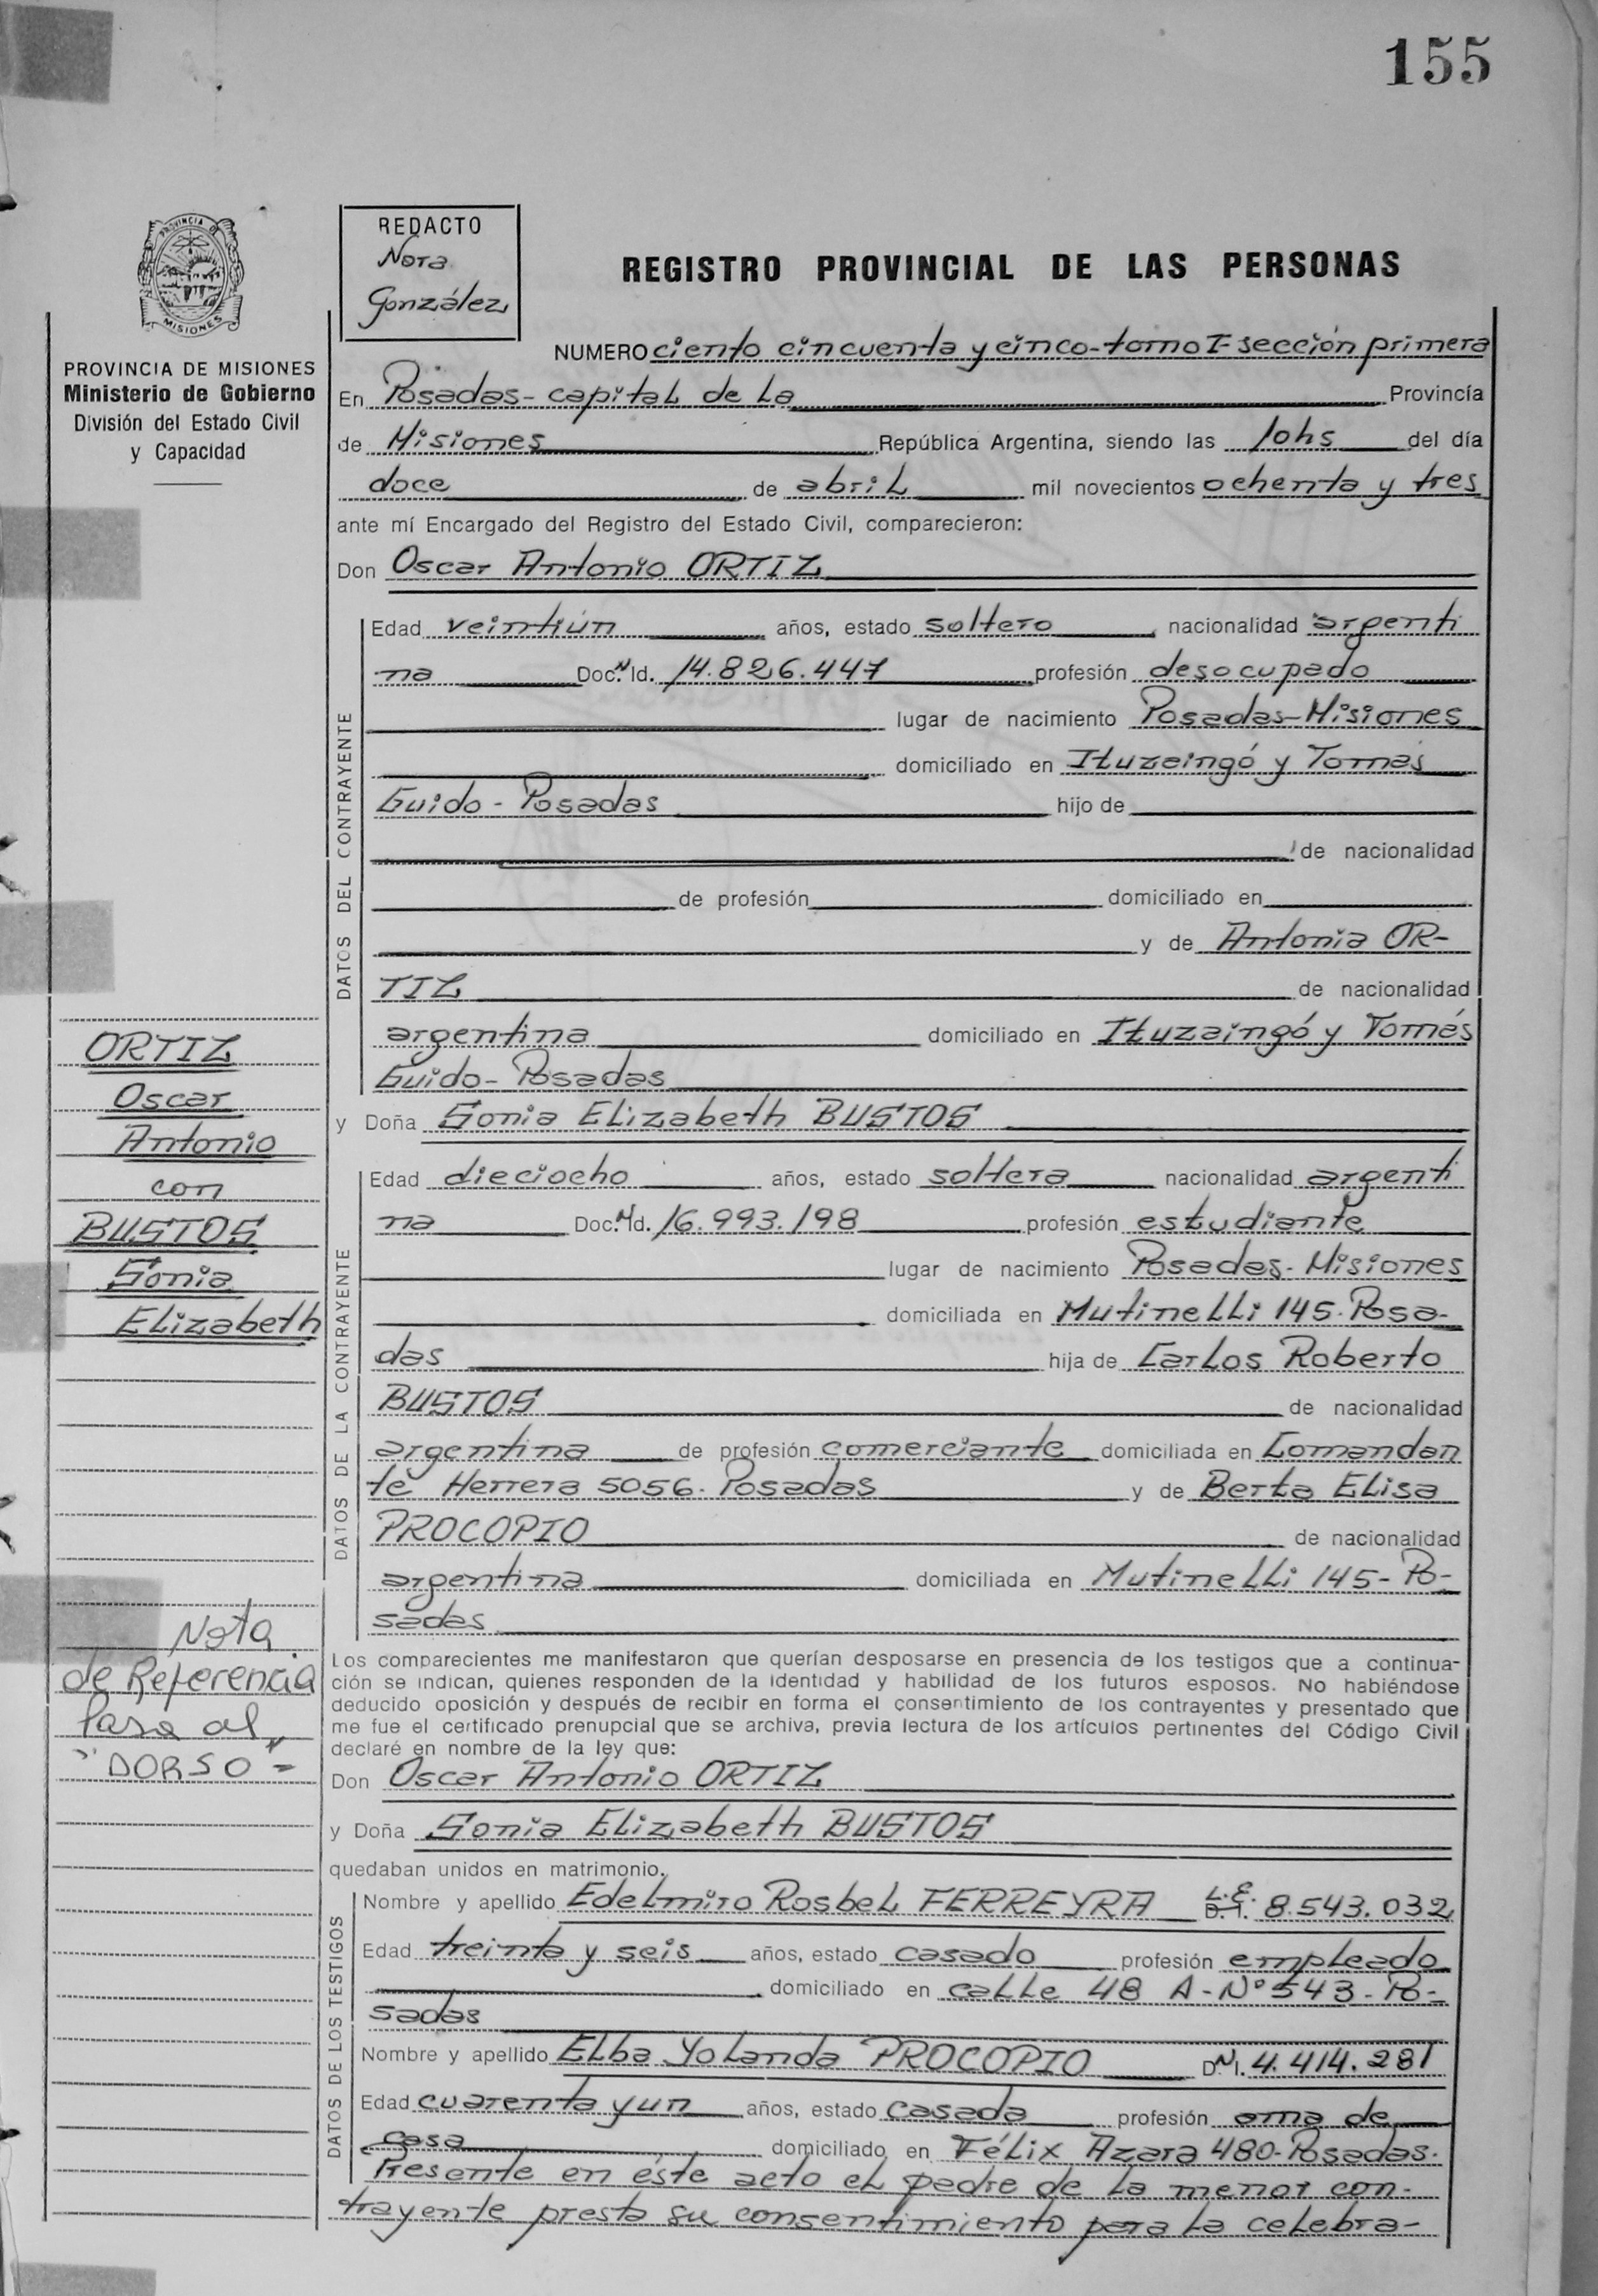 155
REDACTO
Nora
González
REGISTRO PROVINCIAL DE LAS PERSONAS
PROVINCIA DE
MISIONES
PROVINCIA DE MISIONES
Ministerio de Gobierno
División del Estado Civil
y Capacidad
NUMERO ciento cincuenta y cinco-tomo I-sección primera
En Posadas-capital de La Provincia
de Misiones República Argentina, siendo las 10hs del día
doce de abril mil novecientos ochenta y tres
ante mí Encargado del Registro del Estado Civil, comparecieron:
Don Oscar Antonio ORTIZ
DATOS DEL CONTRAYENTE
Edad veintiún años, estado soltero nacionalidad argenti
na Doc. N. Id. 14.826.447 profesión desocupado
lugar de nacimiento Posadas-Misiones
domiciliado en Ituzaingó y Tomás
Guido-Posadas hijo de
de nacionalidad
de profesión domiciliado en
y de Antonia OR-
TIZ de nacionalidad
argentina domiciliado en Ituzaingó y Tomés
Guido-Posadas
y Doña Sonia Elizabeth BUSTOS
DATOS DE LA CONTRAYENTE
Edad dieciocho años, estado soltera nacionalidad argenti
na Doc. N. Id. 16.993.198 profesión estudiante
lugar de nacimiento Posadas-Misiones
domiciliada en Mutinelli 145-Posa-
das hija de Carlos Roberto
BUSTOS de nacionalidad
argentina de profesión comerciante domiciliada en Comandan
te Herrera 5056-Posadas y de Berta Elisa
PROCOPIO de nacionalidad
argentina domiciliada en Mutinelli 145-Po-
sadas
ORTIZ
Oscar
Antonio
con
BUSTOS
Sonia
Elizabeth
Nota
de Referencia
Pasa al
"DORSO"=
Los comparecientes me manifestaron que querían desposarse en presencia de los testigos que a continua-
ción se indican, quienes responden de la identidad y habilidad de los futuros esposos. No habiéndose
deducido oposición y después de recibir en forma el consentimiento de los contrayentes y presentado que
me fue el certificado prenupcial que se archiva, previa lectura de los artículos pertinentes del Código Civil
declaré en nombre de la ley que:
Don Oscar Antonio ORTIZ
y Doña Sonia Elizabeth BUSTOS
quedaban unidos en matrimonio.
DATOS DE LOS TESTIGOS
Nombre y apellido Edelmiro Rosbel FERREYRA L.E. D.I. 8.543.032
Edad treinta y seis años, estado casado profesión empleado
domiciliado en calle 48 A-Nº 543-Po-
sadas
Nombre y apellido Elba Yolanda PROCOPIO D.N.I. 4.414.281
Edad cuarenta y un años, estado casada profesión ama de
casa domiciliado en Félix Azara 480-Posadas.
Presente en éste acto el padre de la menor con-
trayente presta su consentimiento para la celebra-